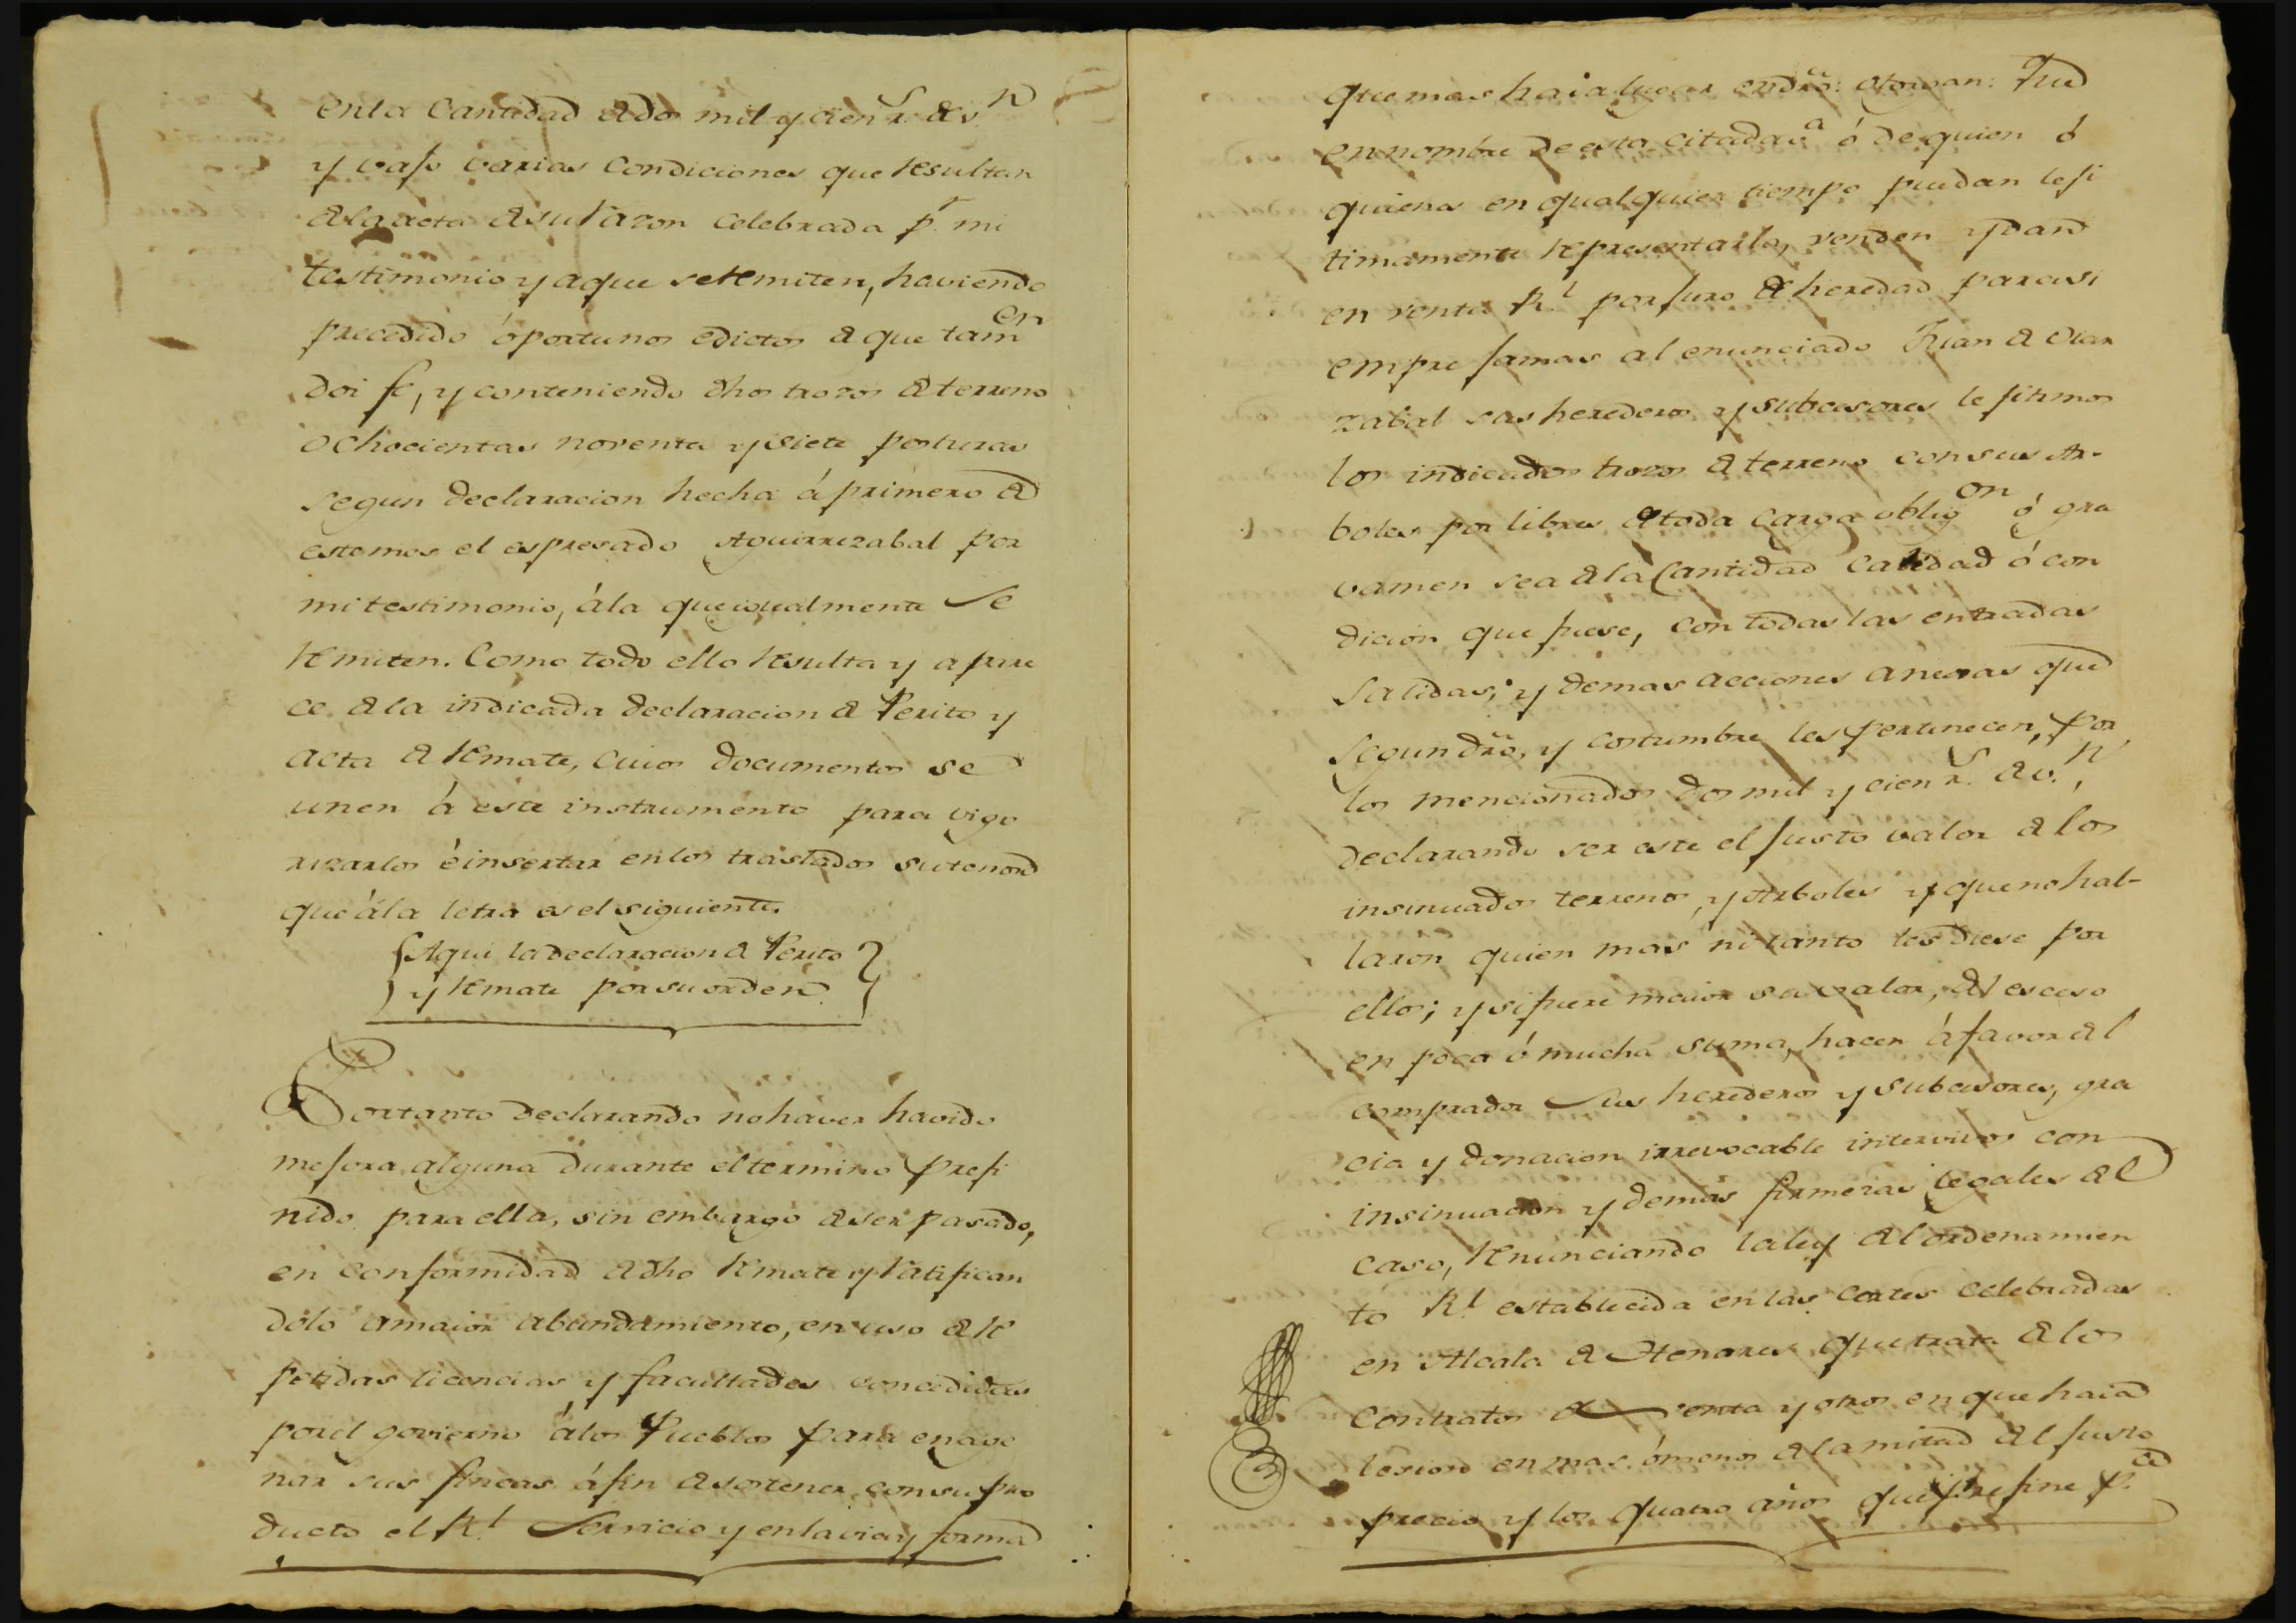 en la Cantidad de dos mil y cien r.s de v.n
y vajo varias Condiciones que resultan
de la acta de su razon celebrada p.r mi
testimonio y a que se remiten, haviendo
precedido óportunos edictos de que tam.en
doi fe, y conteniendo dhos trozos de terreno
ochocientas noventa y siete posturas
segun declaracion hecha á primero de
este mes el espresado Aguirrezabal por
mi testimonio, á la que igualmente se
remiten. Como todo ello resulta y apare
ce de la indicada declaracion de Perito y
acta de remate, cuios documentos se
unen á este instrumento para vigo
rizarlos é insertar en los traslados su tenor
que á la letra es el siguiente.
{Aqui la declaracion de Perito
y remate por su orden.}
Portanto declarando no haver havido
mejora alguna durante el termino prefi
nido para ella, sin embargo de ser pasado,
en conformidad de dho remate y ratifican
dolo a maior abundamiento, en uso de re
petidas licencias y facultades concedidas
por el govierno á los Pueblos para enage
nar sus fincas á fin de sostener con su pro
ducto el R.l Servicio y en la via y forma
que mas haia lugar en dro: otorgan: Que
en nombre de esta citada v.a ó de quien ó
quienes en qualquier tiempo puedan leji
timamente representarla, venden y dan
en venta R.l por juro de heredad para si
empre jamas al enunciado Juan de Olar
zabal sus herederos y subcesores lejitimos
los indicados trozos de terreno con sus Ar-
boles por libres de toda carga oblig.on ó gra
vamen sea de la Cantidad Calidad ó con
dicion que fuese, con todas las entradas
salidas, y demas acciones anexas que
segun dro, y costumbre les pertenecen, por
los mencionados dos mil y cien r.s de v.n,
declarando ser este el justo valor de los
insinuados terrenos, y Arboles y que no hal-
laron quien mas ni tanto les diese por
ellos; y si fuere maior su valor, del esceso
en poca ó mucha suma, hacen á favor del
comprador sus herederos y subcesores, gra
cia y donacion irrevocable intervivos con
insinuacion y demas firmezas legales del
caso, renunciando la ley del ordenamien
to R.l establecida en las Cortes celebradas
en Alcala de Henares que trata de los
contratos de venta y otros en que haia
lesion en mas ó menos de la mitad del justo
precio y los quatro años que prefine p.a